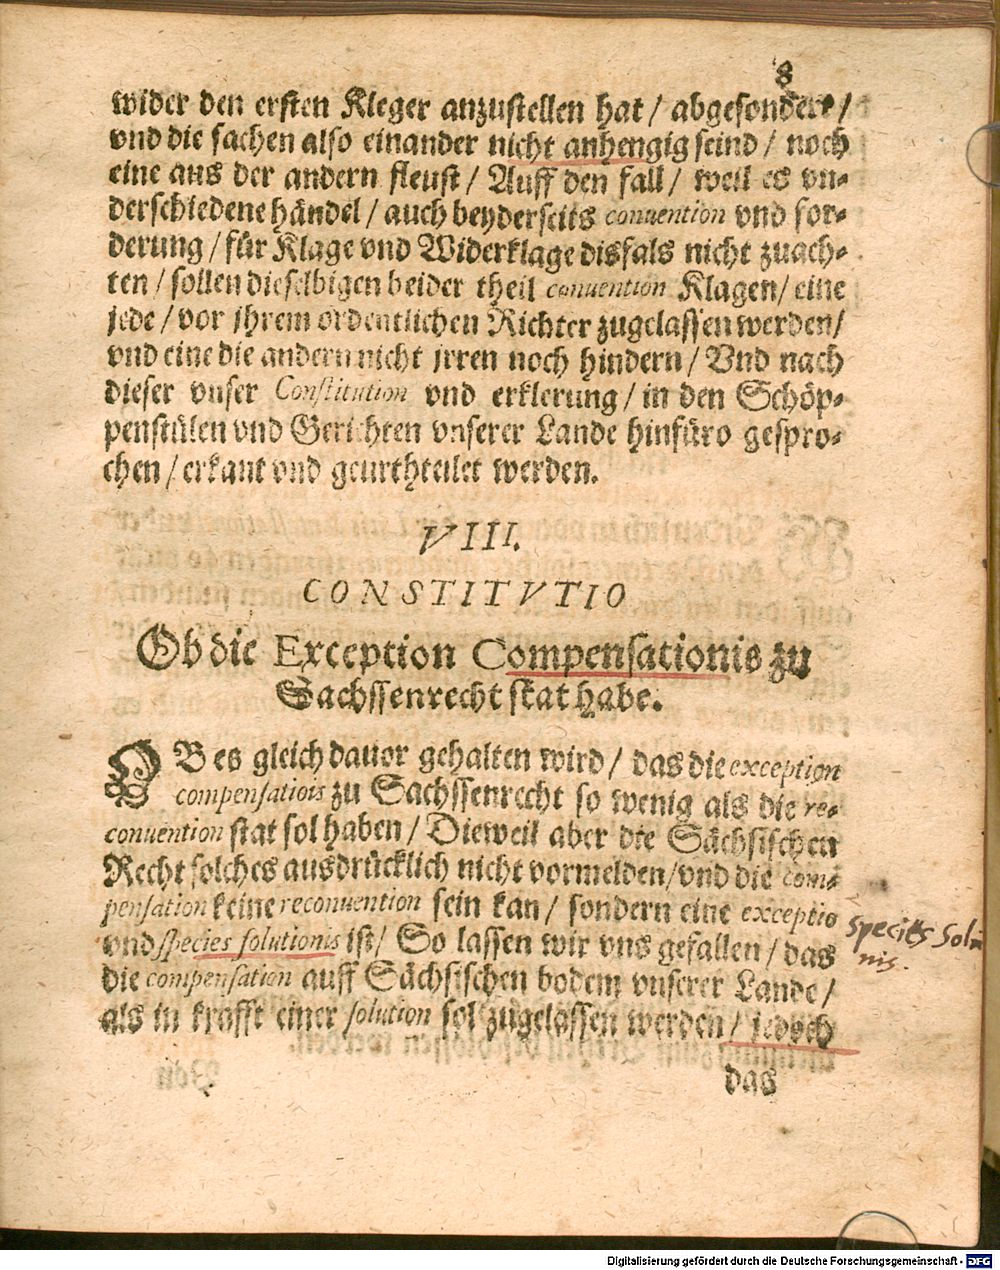 8
wider den ersten Kleger anzustellen hat / abgesondert /
vnd die sachen also einander nicht anhengig seind / noch
eine aus der andern fleust / Auff den fall / weil es vn-
derschiedene händel / auch beyderseits conuention vnd for-
derung / für Klage vnd Widerklage disfals nicht zuach-
ten / sollen dieselbigen beider theil conuention Klagen / eine
jede / vor jhrem ordentlichen Richter zugelassen werden /
vnd eine die andern nicht jrren noch hindern / Vnd nach
dieser vnser Constitution vnd erklerung / in den Schöp-
penstülen vnd Gerichten vnserer Lande hinfüro gespro-
chen / erkant vnd geurtheilet werden.
VIII.
CONSTITVTIO
Ob die Exception Compensationis zu
Sachssenrecht stat habe.
OB es gleich dauor gehalten wird / das die exception
compensatiois zu Sachssenrecht so wenig als die re-
conuention stat sol haben / Dieweil aber die Sächsischen
Recht solches ausdrücklich nicht vormelden / vnd die com-
pensation keine reconuention sein kan / sondern eine exceptio
vnd species solutionis ist / So lassen wir vns gefallen / das
die compensation auff Sächsischen bodem vnserer Lande /
als in krafft einer solution sol zugelassen werden / jedoch
das
species Solu
nis.
Digitalisierung gefördert durch die Deutsche Forschungsgemeinschaft - DFG